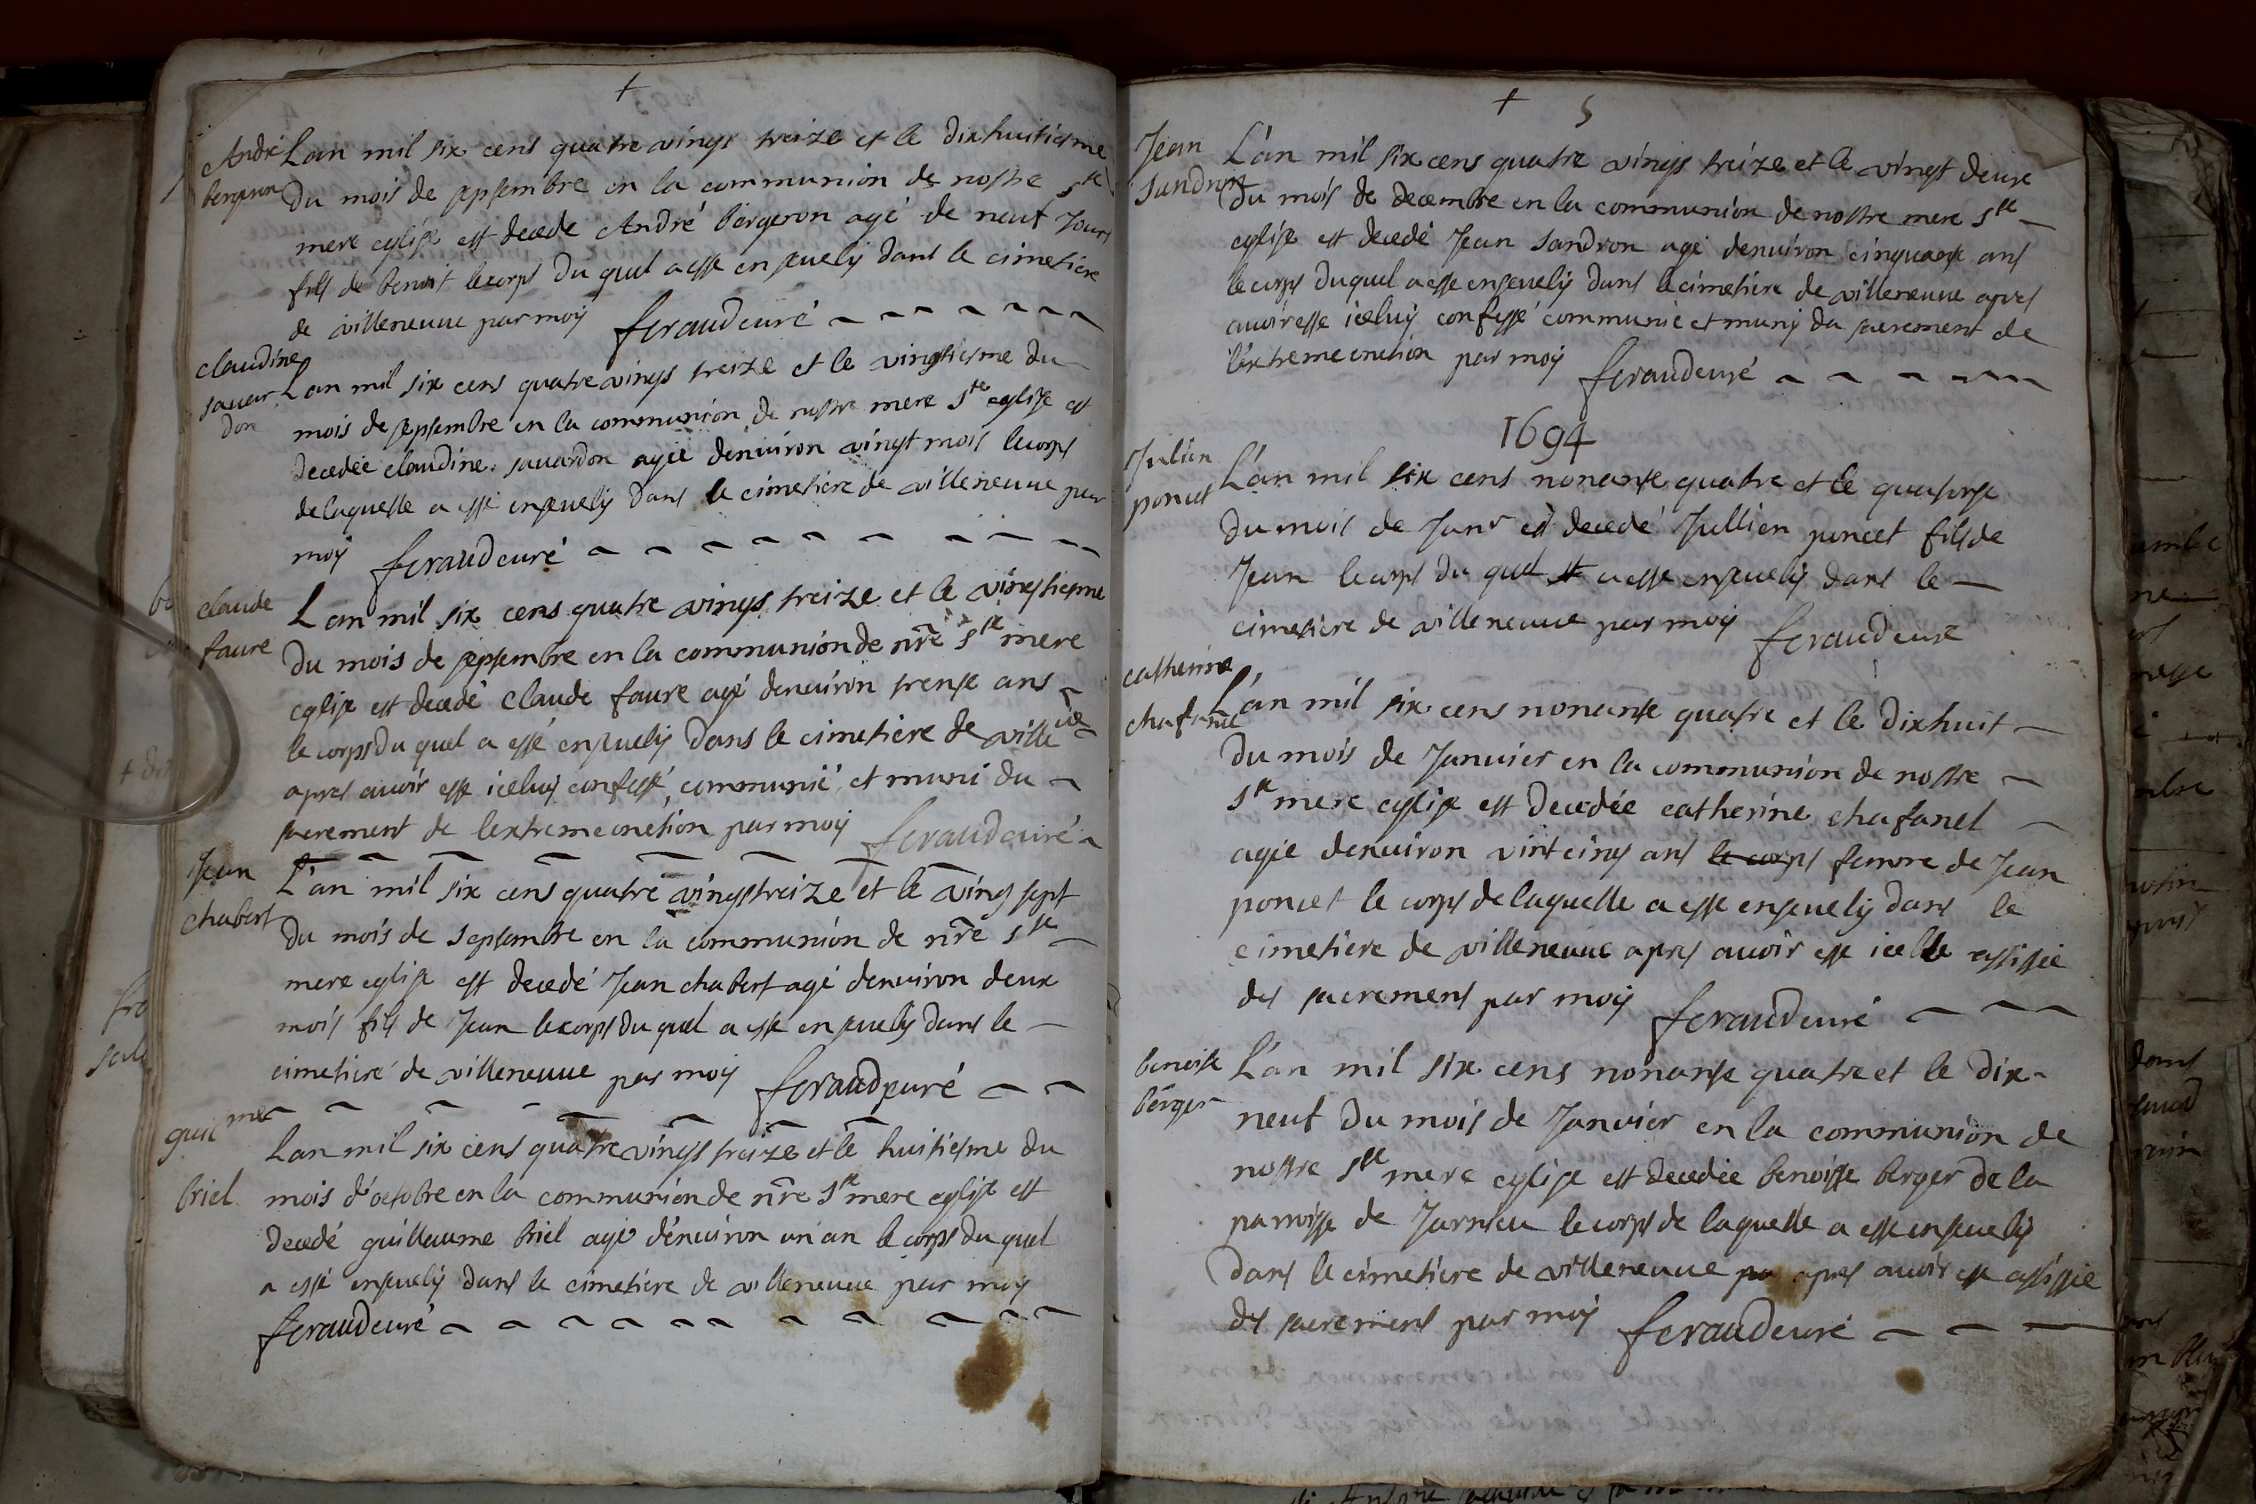 +
André
bergeron
Lan mil six cens quatre vings treize et le dixhuitiesme
du mois de septembre en la communion de nostre ste
mere eglise est decede André bergeron agé de neuf Jours
fils de benoit le corps du quel a esse ensevely dans le cimetiere
de villeneuve par moy feraud curé
claudine
savar
don
Lan mil six cens quatre vings treize et le vingtiesme du
mois de septembre en la communion de nostre mere ste eglise est
decedée claudine savardon agée denviron vingt mois le corps
de laquelle a esse ensevely dans le cimetiere de villeneuve par
moy feraud curé
claude
faure
Lan mil six cens quatre vings treize et le vingtiesme
du mois de septembre en la communion de nre ste mere
eglise est decedé claude faure agé denviron trente ans
le corps du quel a essé ensevely dans le cimetiere de villeve
apres avoir esse iceluy confessé communié et muni du
sacrement de lextremeonction par moy feraud curé
Jean
chabert
L'an mil six cens quatre vings treize et le ving sept
du mois de septembre en la communion de nre ste
mere eglise est decedé Jean chabert agé denviron deux
mois fils de Jean le corps du quel a esse ensevely dans le
cimetiere de villeneuve par moy feraud curé
guilme
briel
Lan mil six cens quatre vings treize et le huitiesme du
mois d'octobre en la communion de nre ste mere eglise est
decedé guillaume briel agé d'environ un an le corps du quel
a essé ensevely dans le cimetiere de villeneuve par moy
feraud curé
+ 5
Jean
sandron
L'an mil six cens quatre vings treize et le vingt deux
du mois de decembre en la communion de nostre mere ste
eglise est decedé Jean sandron agé denviron cinquante ans
le corps duquel a esse ensevely dans le cimetiere de villeneuve apres
avoir esse iceluy confessé communié et muny du sacrement de
l'extremeonction par moy feraud curé
1694
Julien
poncet
L'an mil six cens nonante quatre et le quatorse
du mois de Janr est decedé Jullien poncet fils de
Jean le corps du quel a esse ensevely dans le
cimetiere de villeneuve par moy feraud curé
catherine
chafanel
L'an mil six cens nonante quatre et le dixhuit
du mois de Janvier en la communion de nostre
ste mere eglise est decedée catherine chafanel
agée denviron vint cinq ans le corps femme de Jean
poncet le corps de laquelle a esse ensevely dans le
cimetiere de villeneuve apres avoir esse icelle assissée
des sacremens par moy feraud curé
benoiste
berger
L'an mil six cens nonante quatre et le dix
neuf du mois de Janvier en la communion de
nostre ste mere eglise est decedée benoisse berger de la
paroisse de Jarnieu le corps de laquelle a esse ensevely
dans le cimetiere de villeneuve pa apres avoir esse assissée
des sacremens par moy feraud curé